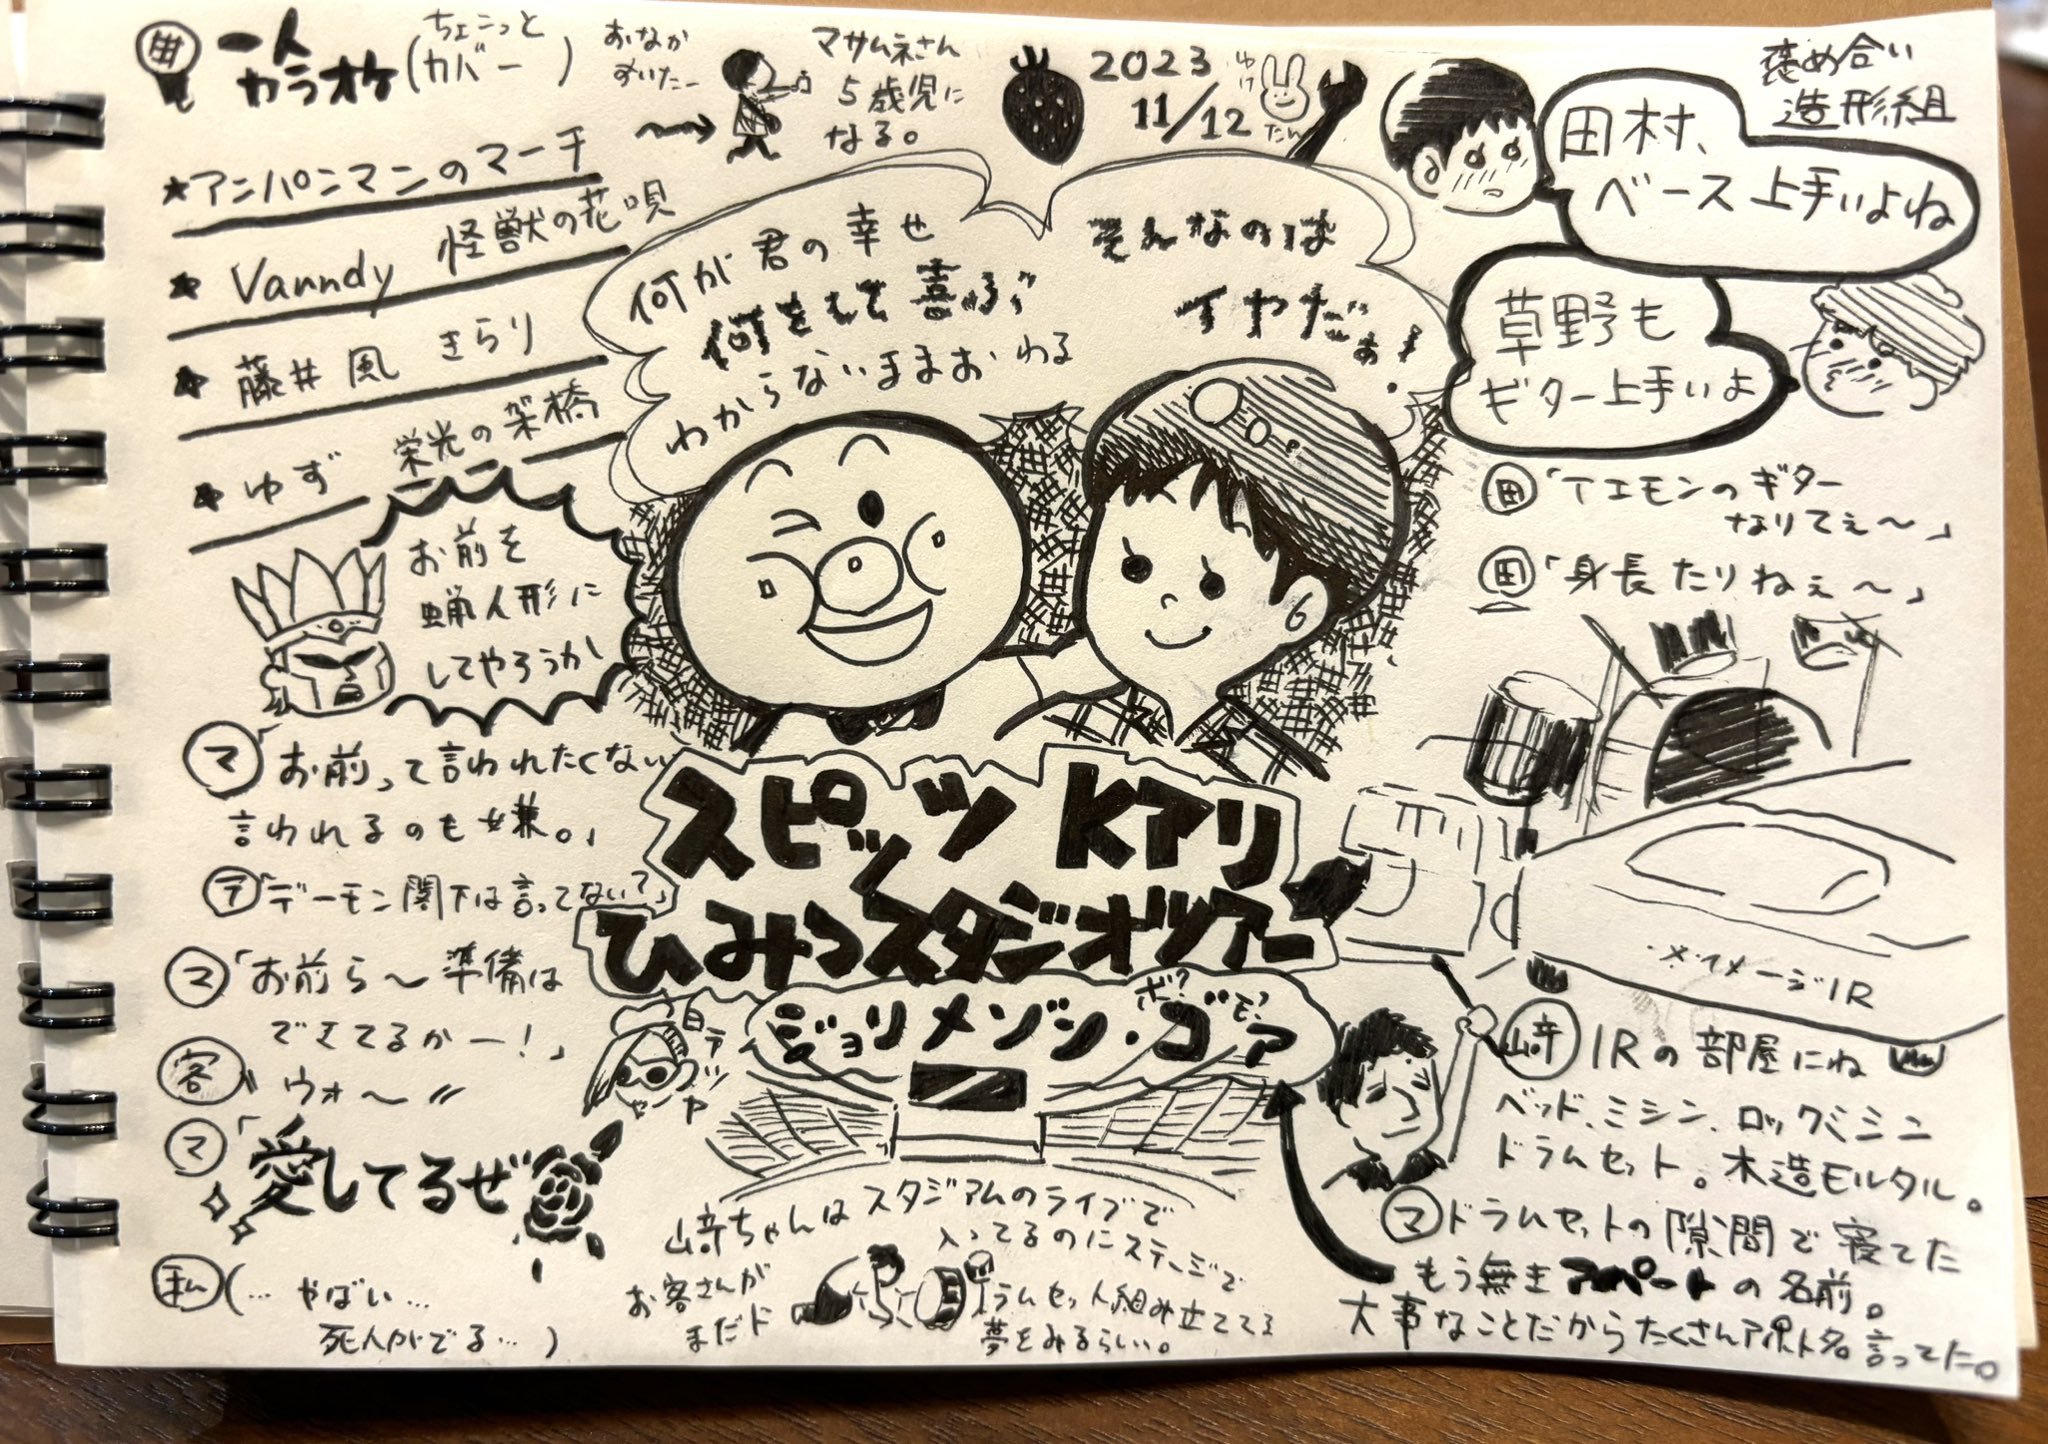 一人
カラオケ
(ちょこっと
カバー)
おなか
すいたー
マサムネさん
5歳児に
なる。
★アンパンマンのマーチ
★Vanndy 怪獣の花唄
★藤井風 きらり
★ゆず 栄光の架橋
2023
11/12
ゆけ
たん
何が君の幸せ
何をして喜ぶ
わからないままおわる
そんなのは
イヤだぁ!
褒め合い
造形組
田村、
ベース上手いよね
草野も
ギター上手いよ
田「Tエモンのギター
なりてぇ〜」
田「身長たりねぇ〜」
お前を
蝋人形に
してやろうか
マ「お前って言われたくない
言われるのも嫌。」
テ「デーモン閣下は言ってない?」
マ「お前ら〜準備は
できてるかー!」
客 ウォ〜〃
マ「愛してるぜ
私(… やばい…
死人がでる…)
スピッツ Kアリ
ひみつスタジオツアー
ジョリメゾン・ゴア
ざ?
モ?
﨑ちゃんはスタジアムのライブで
お客さんが
入ってるのにステージで
まだド
ラムセット組み立ててる
夢をみるらしい。
※イメージ1R
﨑 1Rの部屋にね
ベッド、ミシン、ロックミシン
ドラムセット。木造モルタル。
マ ドラムセットの隙間で寝てた
もう無きアパートの名前。
大事なことだからたくさんアパート名言ってた。